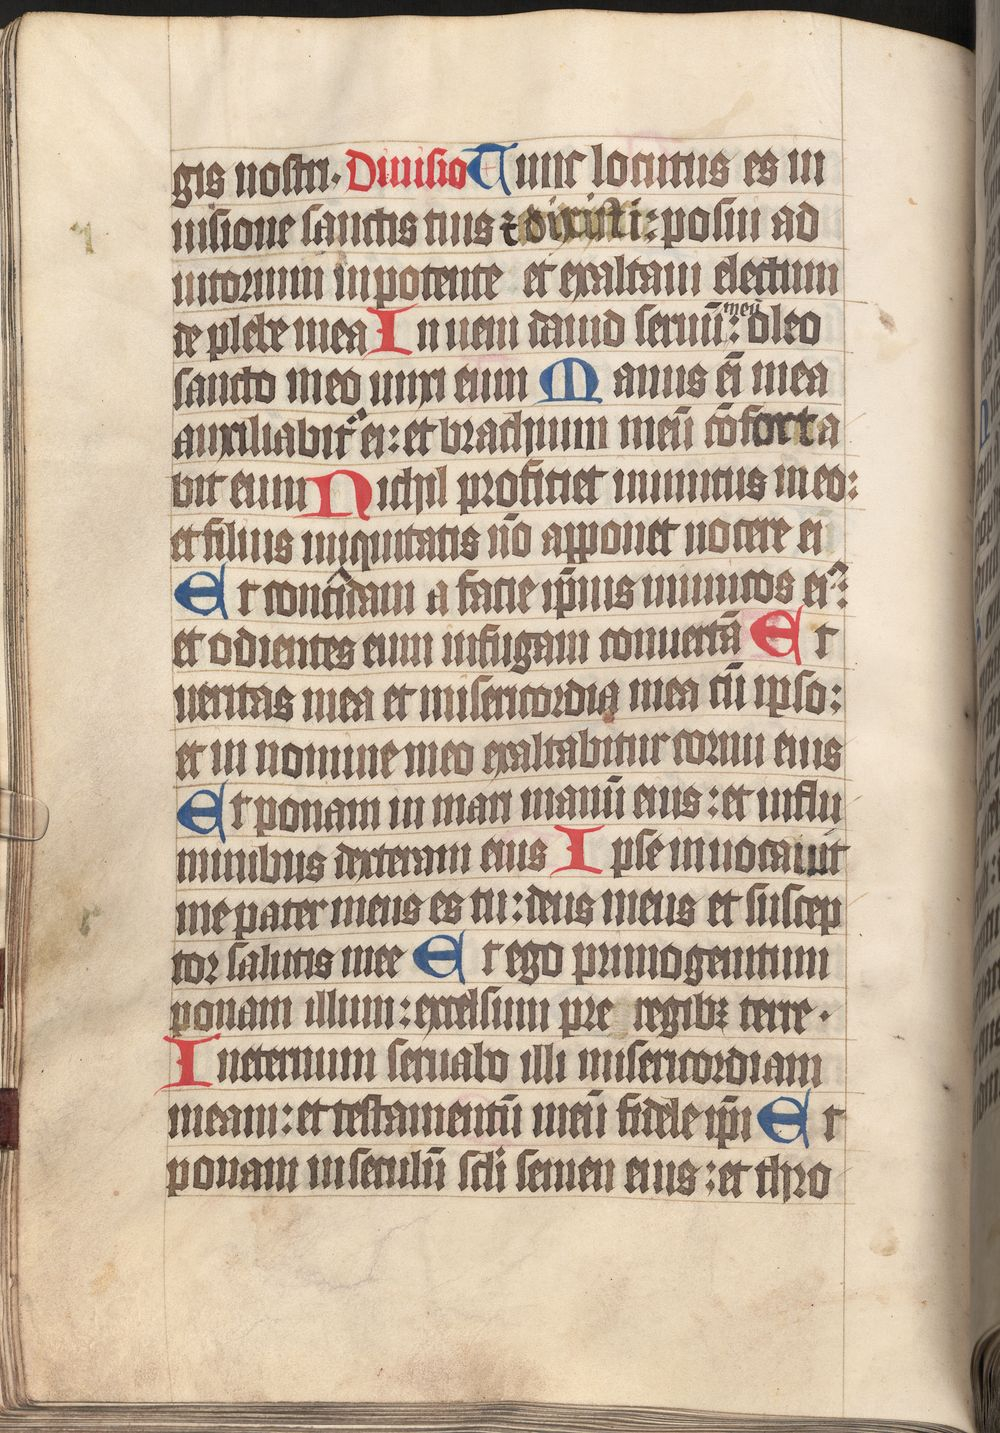 gis nostri. Diuisio Tunc locutus es in
uisione sanctis tuis ⁊ dixisti: posui ad
iutorium inpotente et exaltaui electum
de plebe mea Inueni dauid seruū meū: oleo
sancto meo unxi eum Manus ei mea
auxiliabit᷑ ei: et brachium meū cōforta
bit eum Nichil proficiet inimicus in eo:
et filius iniquitatis nō apponet nocere ei
Et concidam a facie ip̄ius inimicos ei᷒:
et odientes eum infugam conuertā Et
ueritas mea et misericordia mea cū ipso:
et in nomine meo exaltabitur cornu eius
Et ponam in mari manū eius: et influ
minibus dexteram eius Ipse inuocauit
me pater meus es tu: deus meus et suscep
tor salutis mee Et ego primogenitum
ponam illum: excelsum pre regibꝫ terre.
Ineternum seruabo illi misericordiam
meam: et testamentū meū fidele ip̄i Et
ponam in seculū scl̄i semen eius: et thro